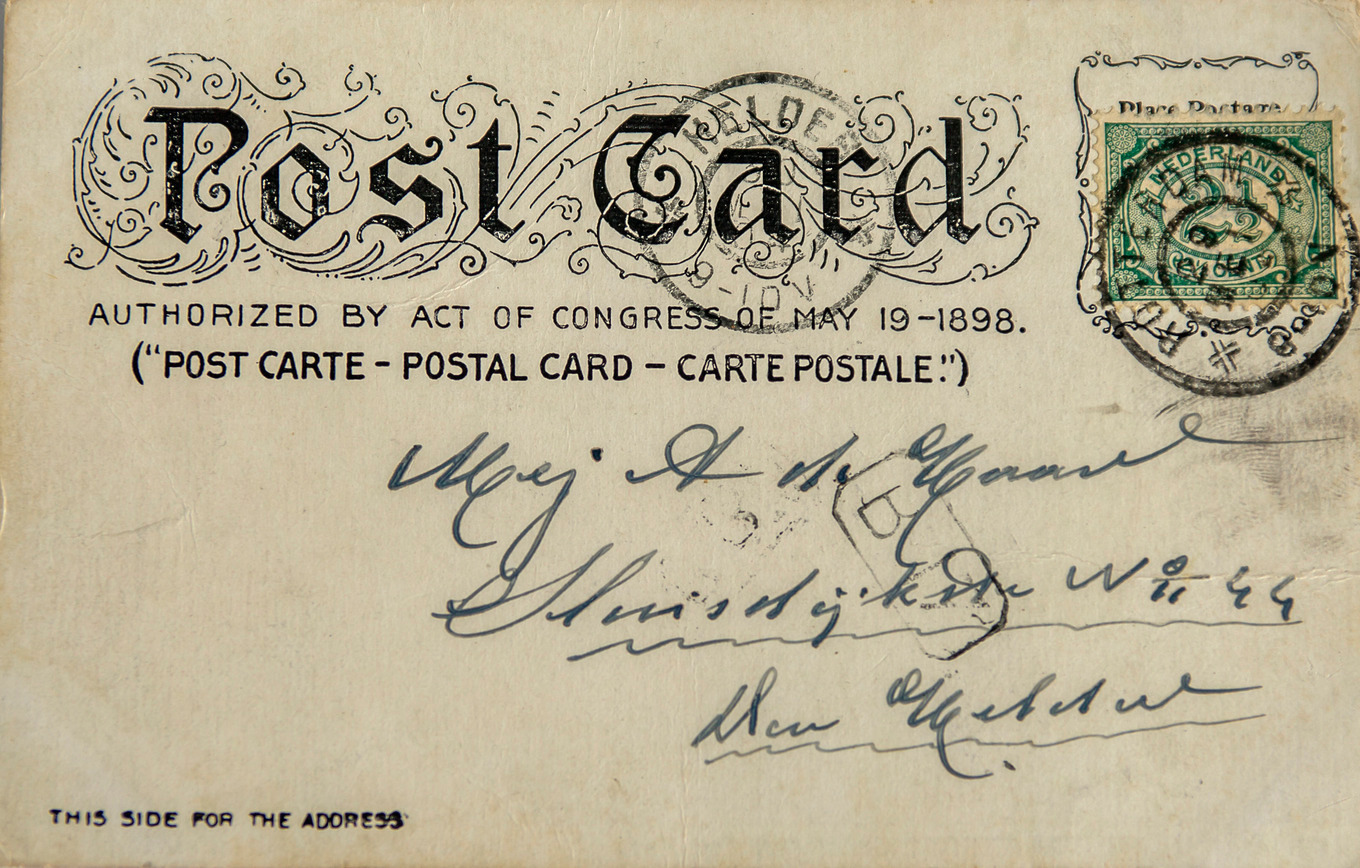 Post Card
HELDER
9-10V
Place Postage
NEDERLAND
2½
CENT
ROTTERDAM
AUTHORIZED BY ACT OF CONGRESS OF MAY 19-1898.
("POST CARTE - POSTAL CARD - CARTE POSTALE.")
Mej A de Haas
Sluisdijkstr No 44
Den Helder
THIS SIDE FOR THE ADDRESS